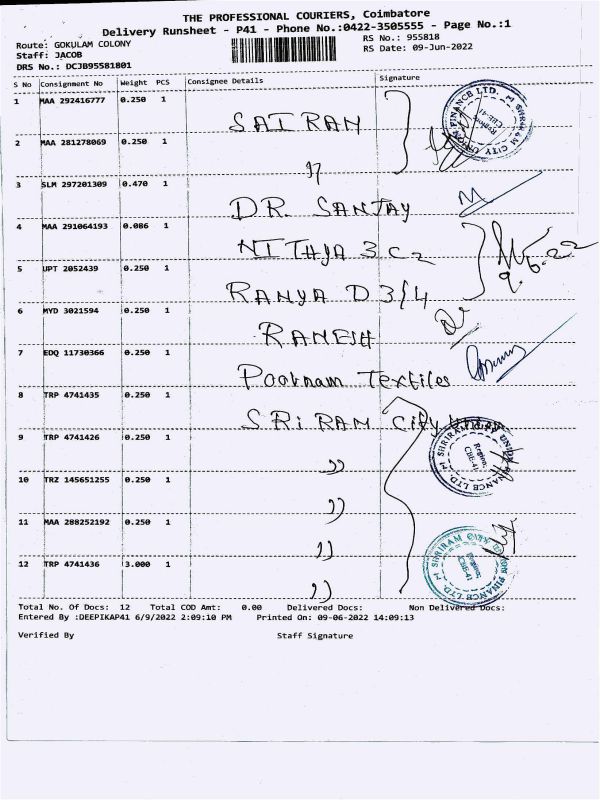 THE PROFESSIONAL COURIERS, Coimbatore
Delivery Runsheet - P41 - Phone No.:0422-3505555 - Page No.:1
Route: GOKULAM COLONY
RS No.: 955818
Staff: JACOB
RS Date: 09-Jun-2022
DRS No.: DCJB95581801
S No Consignment No Weight PCS Consignee Details Signature
1 MAA 292416777 0.250 1 SAI RAM
2 MAA 281278069 0.250 1 "
3 SLM 297201309 0.470 1 DR. SANJAY
4 MAA 291064193 0.086 1 NITHYA 3 C2
5 UPT 2052439 0.250 1 RANYA D 3/4
9.6.22
6 MYD 3021594 0.250 1 RAMESH
7 EDQ 11730366 0.250 1 Poornam Textiles
8 TRP 4741435 0.250 1 SRi RAM City
9 TRP 4741426 0.250 1 "
10 TRZ 145651255 0.250 1 "
11 MAA 288252192 0.250 1 "
12 TRP 4741436 3.000 1 "
SHRIRAM CITY UNION FINANCE LTD.
Region: CBE-41
SHRIRAM CITY UNION FINANCE LTD.
Region: CBE-41
SHRIRAM CITY UNION FINANCE LTD.
Region: CBE-41
Total No. Of Docs: 12 Total COD Amt: 0.00 Delivered Docs: Non Delivered Docs:
Entered By :DEEPIKAP41 6/9/2022 2:09:10 PM Printed On: 09-06-2022 14:09:13
Verified By Staff Signature